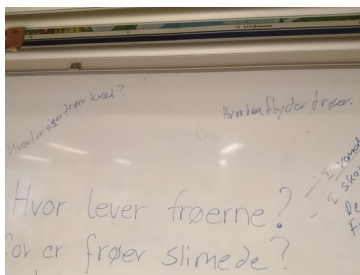 Hvorfor siger frøer kvæk?
Hvordan flyder frøer.
Hvor lever frøerne?
I
I
De
for er frøer slimede?